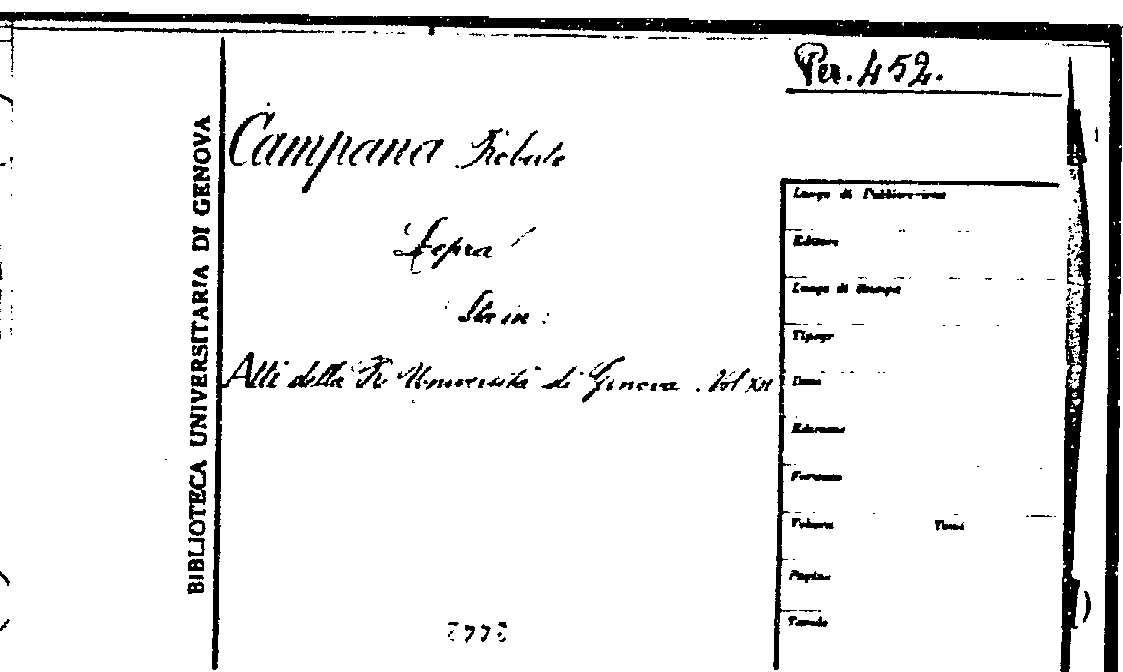 Per. 452.
BIBLIOTECA UNIVERSITARIA DI GENOVA
Campana Roberto
Lepra
Sta in:
Atti della R. Università di Genova. Vol XII
Luogo di Pubblicazione
Editore
Luogo di Stampa
Tipogr
Data
Edizione
Formato
Volume Tomi
Pagine
Tavole